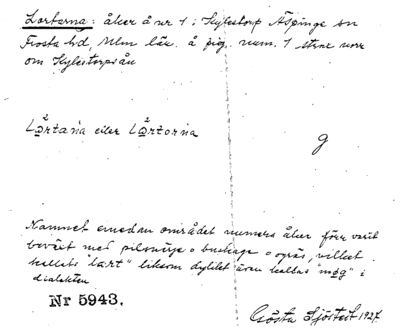 Lortarna: åker å nr 1 i Kylestorp Äspinge sn
Frosta hd, Mlm län. å fig. num. 1 strax norr
om Kylestorpsån
Lo̱rtana eller Lo̱rtorna
g
Namnet emedan området numera åker förr varit
beväxt med pilsnårje o buskage o ogräs, vilket
kallats "lort" liksom dylikt även kallas "mög" i
dialekten
Nr 5943.
Gösta Sjöstedt 1927.